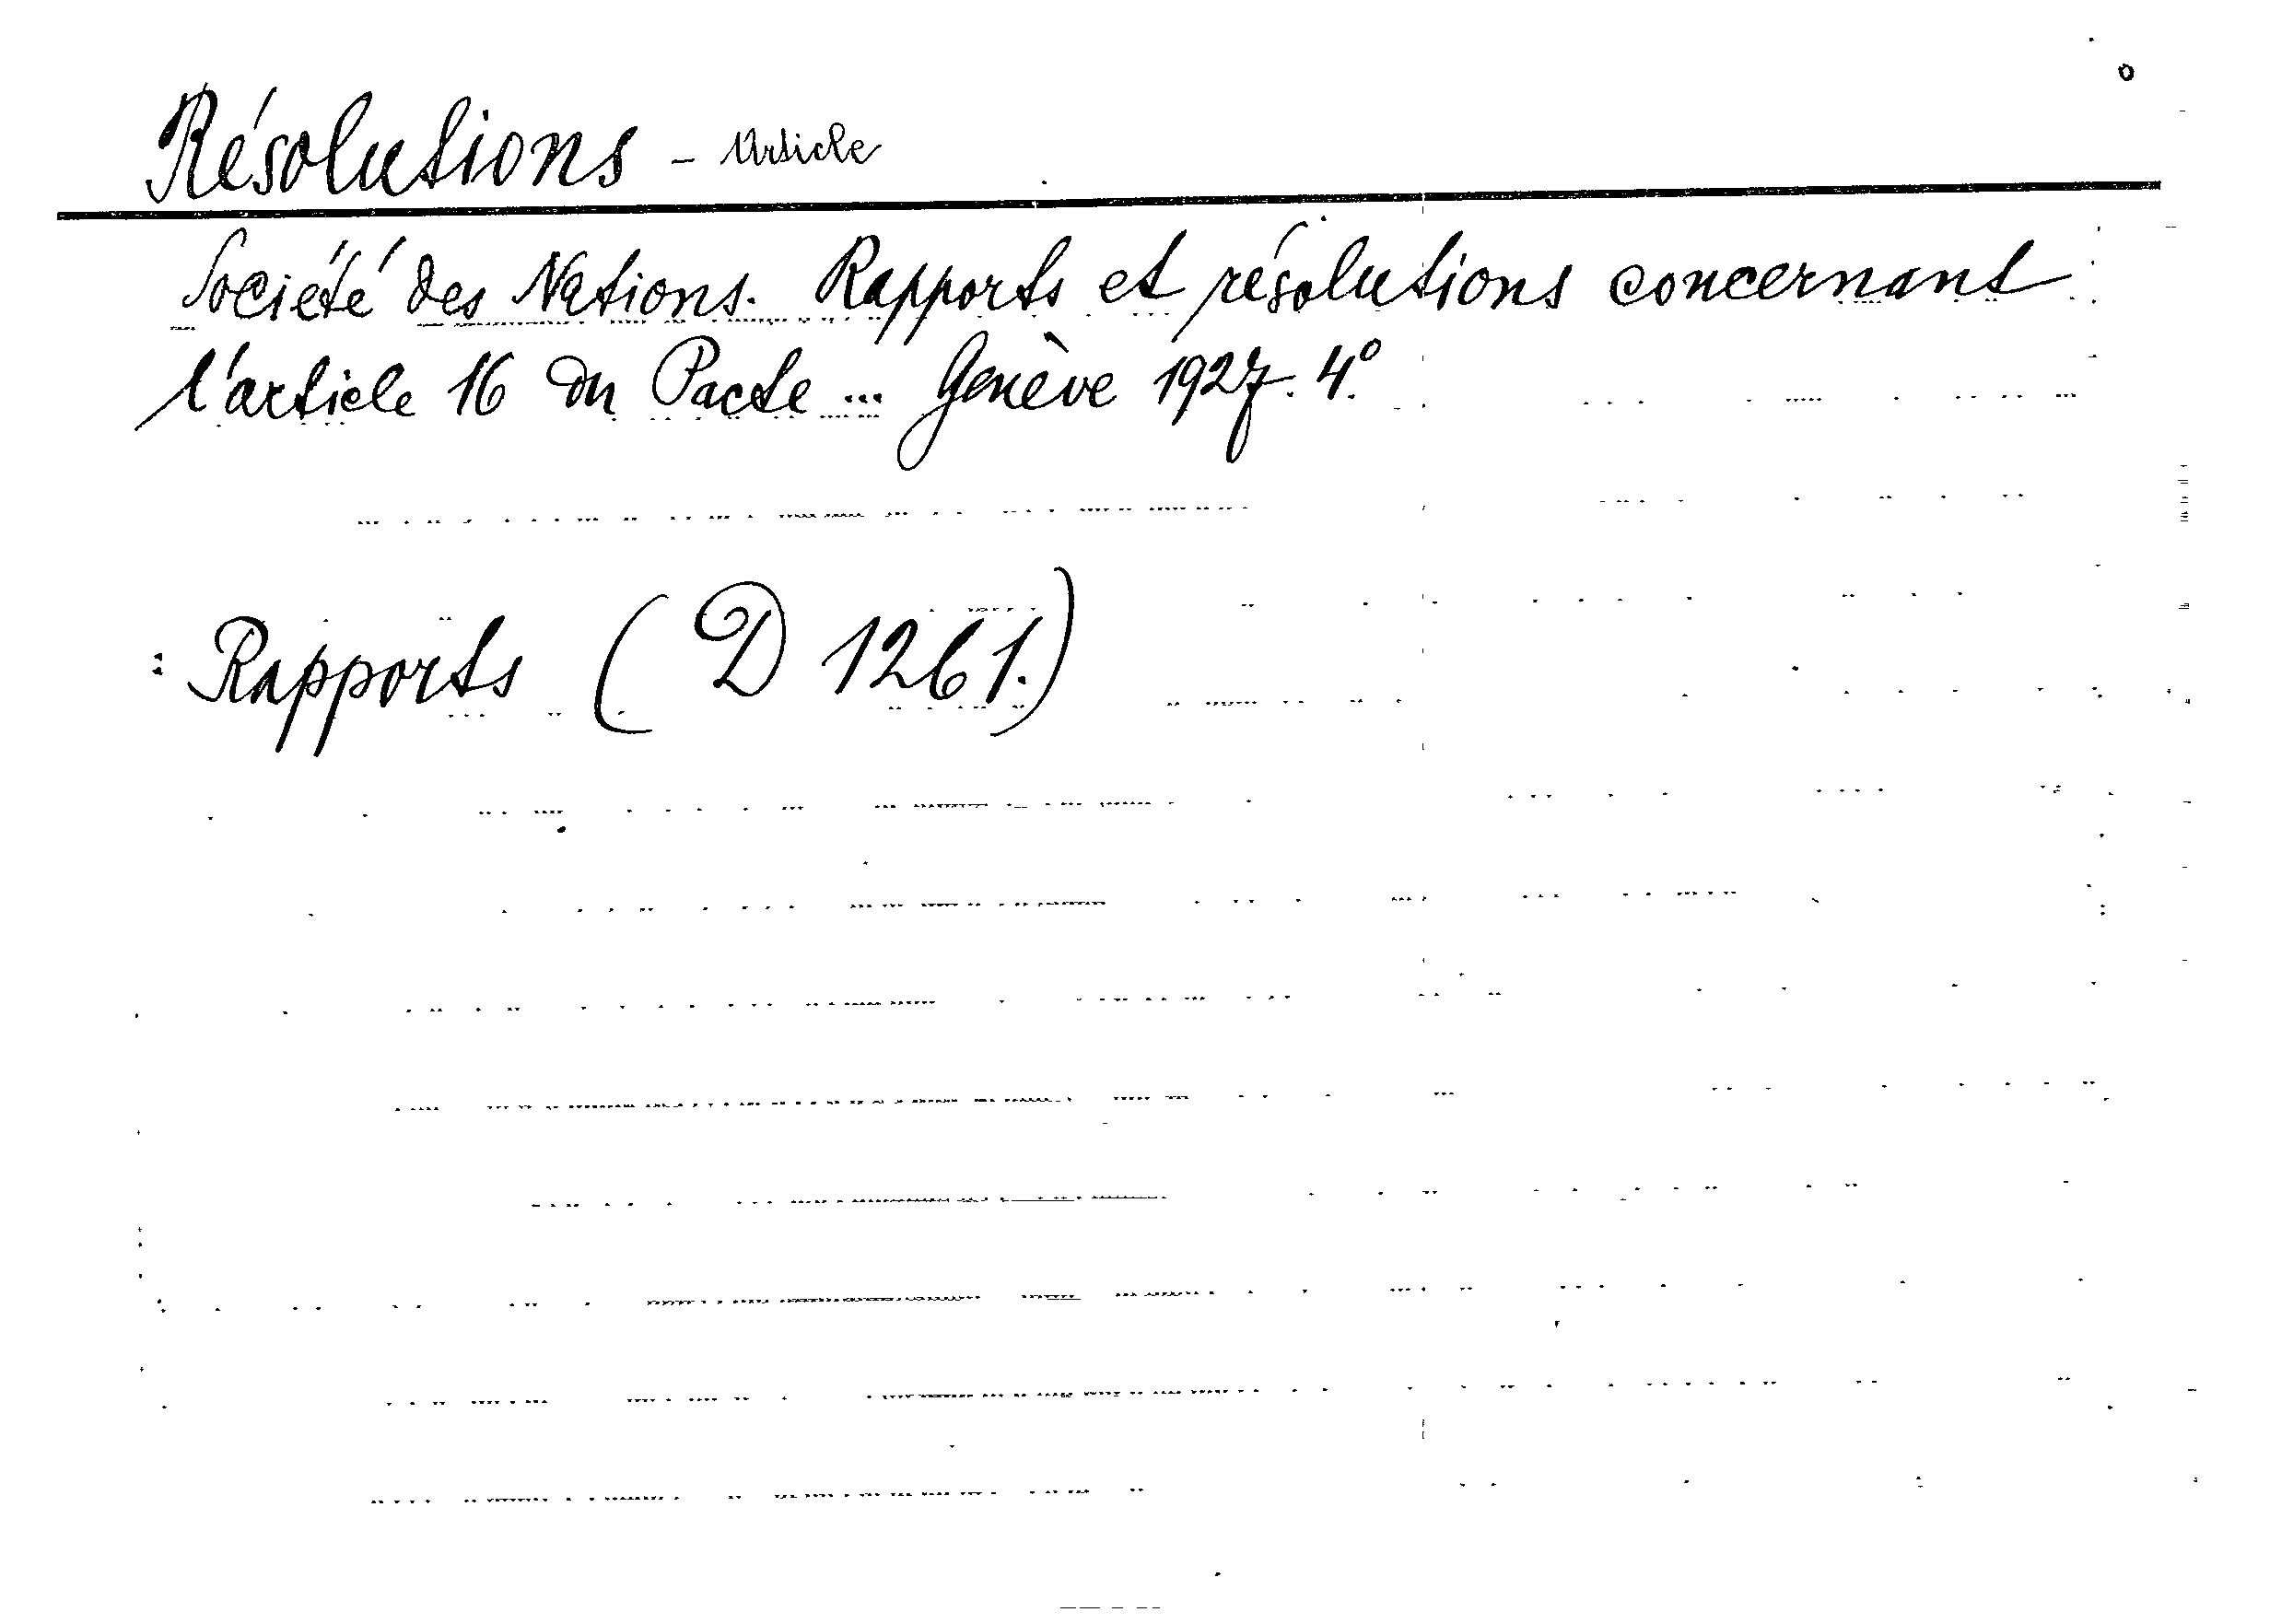 Résolutions - Article
Société des Nations. Rapports et résolutions concernant
l'article 16 du Pacte ... Genève 1927. 4°.
: Rapports (D 1261.)